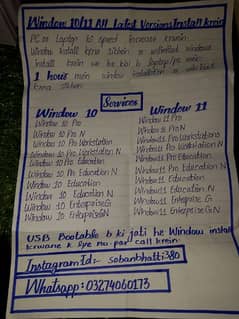 Window 10/11 All Latest Versions Install krein
PC or Laptop ki speed increase krwein
Window install krna sikhein & unlimited windows
install krein we he bi b laptop/pc mein
1 hour mein window installation & activation
krna sikhein
Services
Window 10
Window 10 Pro
Window 10 Pro N
Window 10 Pro Workstation
Window 10 Pro Workstation N
Window 10 Pro Education
Window 10 Pro Education N
Window 10 Education
Window 10 Education N
Window 10 Enterprise G
Window 10 Enterprise GN
Window 11
Window 11 Pro
Window 11 Pro N
Window 11 Pro Workstations
Window 11 Pro Workstation N
Window 11 Pro Education
Window 11 Pro Education N
Window 11 Education
Window 11 Education N
Window 11 Enterprise G
Window 11 Enterprise GN
USB Bootable b ki jati he Window install
krwane k lye no. par call krein
Instagram Id:- sobanbhatti380
Whatsapp: 03274060173